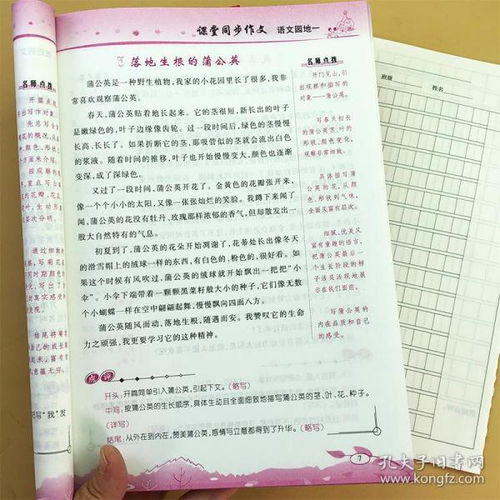 课堂同步作文 语文园地一
落地生根的蒲公英
蒲公英是一种野生植物,我家的小花园里长了很多,我非
常喜欢观察蒲公英。
春天,蒲公英贴着地长起来。它的茎很短,新长出的叶子
是嫩绿色的,叶子边缘像齿轮。过一段时间后,绿色的茎慢慢
长高、长长了。如果折断它的茎,那吸管似的茎就会流出白色
的浆液。随着时间的推移,叶子也开始慢慢变大,颜色也逐渐
变深,成了深绿色。
又过了一段时间,蒲公英开花了。金黄色的花瓣张开来,
像一个个小小的太阳,又像一张张灿烂的笑脸。我蹲下来闻了
闻,蒲公英的花没有牡丹、玫瑰那样浓郁的香气,但却散发出一
股大自然特有的气息。
初夏到了,蒲公英的花朵开始凋谢了,花蒂处长出像冬天
的滑雪帽上的绒球一样的东西,有白色的、粉色的,很好看。如
果这个时候有风吹过,蒲公英的绒球就开始飘出一把把“小
伞”。小伞下端带着一颗颗黑菜籽般大小的种子,它们像无数
个小蝴蝶一样在空中翩翩起舞,慢慢飘向四面八方。
蒲公英随风而动,落地生根,随遇而安。我赞叹它的生命
力之顽强,我更要学习它的这种精神。
名师点拨
开门见山,引
出观察和描写的
对象——蒲公英。
写春天初长
的蒲公英茎、叶的
形状、颜色变化,
观察非常细致。
具体描写蒲
公英的花,从颜
色、形状到气味,
全面又富有层次。
细腻、优美又
富有童趣的语言,
把蒲公英最后一
个生长阶段的样
子活灵活现地展
示在我们面前。
写蒲公英的
内在品质和自己
的感受。
点评
开头:开篇简单引入蒲公英,引起下文。(略写)
中间:按蒲公英的生长顺序,具体生动且全面细致地描写蒲公英的茎、叶、花、种子。
(详写)
结尾:从外在到内在,赞美蒲公英,感情与立意都得到了升华。(略写)
7
班级
姓名
孔夫子旧书网
www.kongfz.com